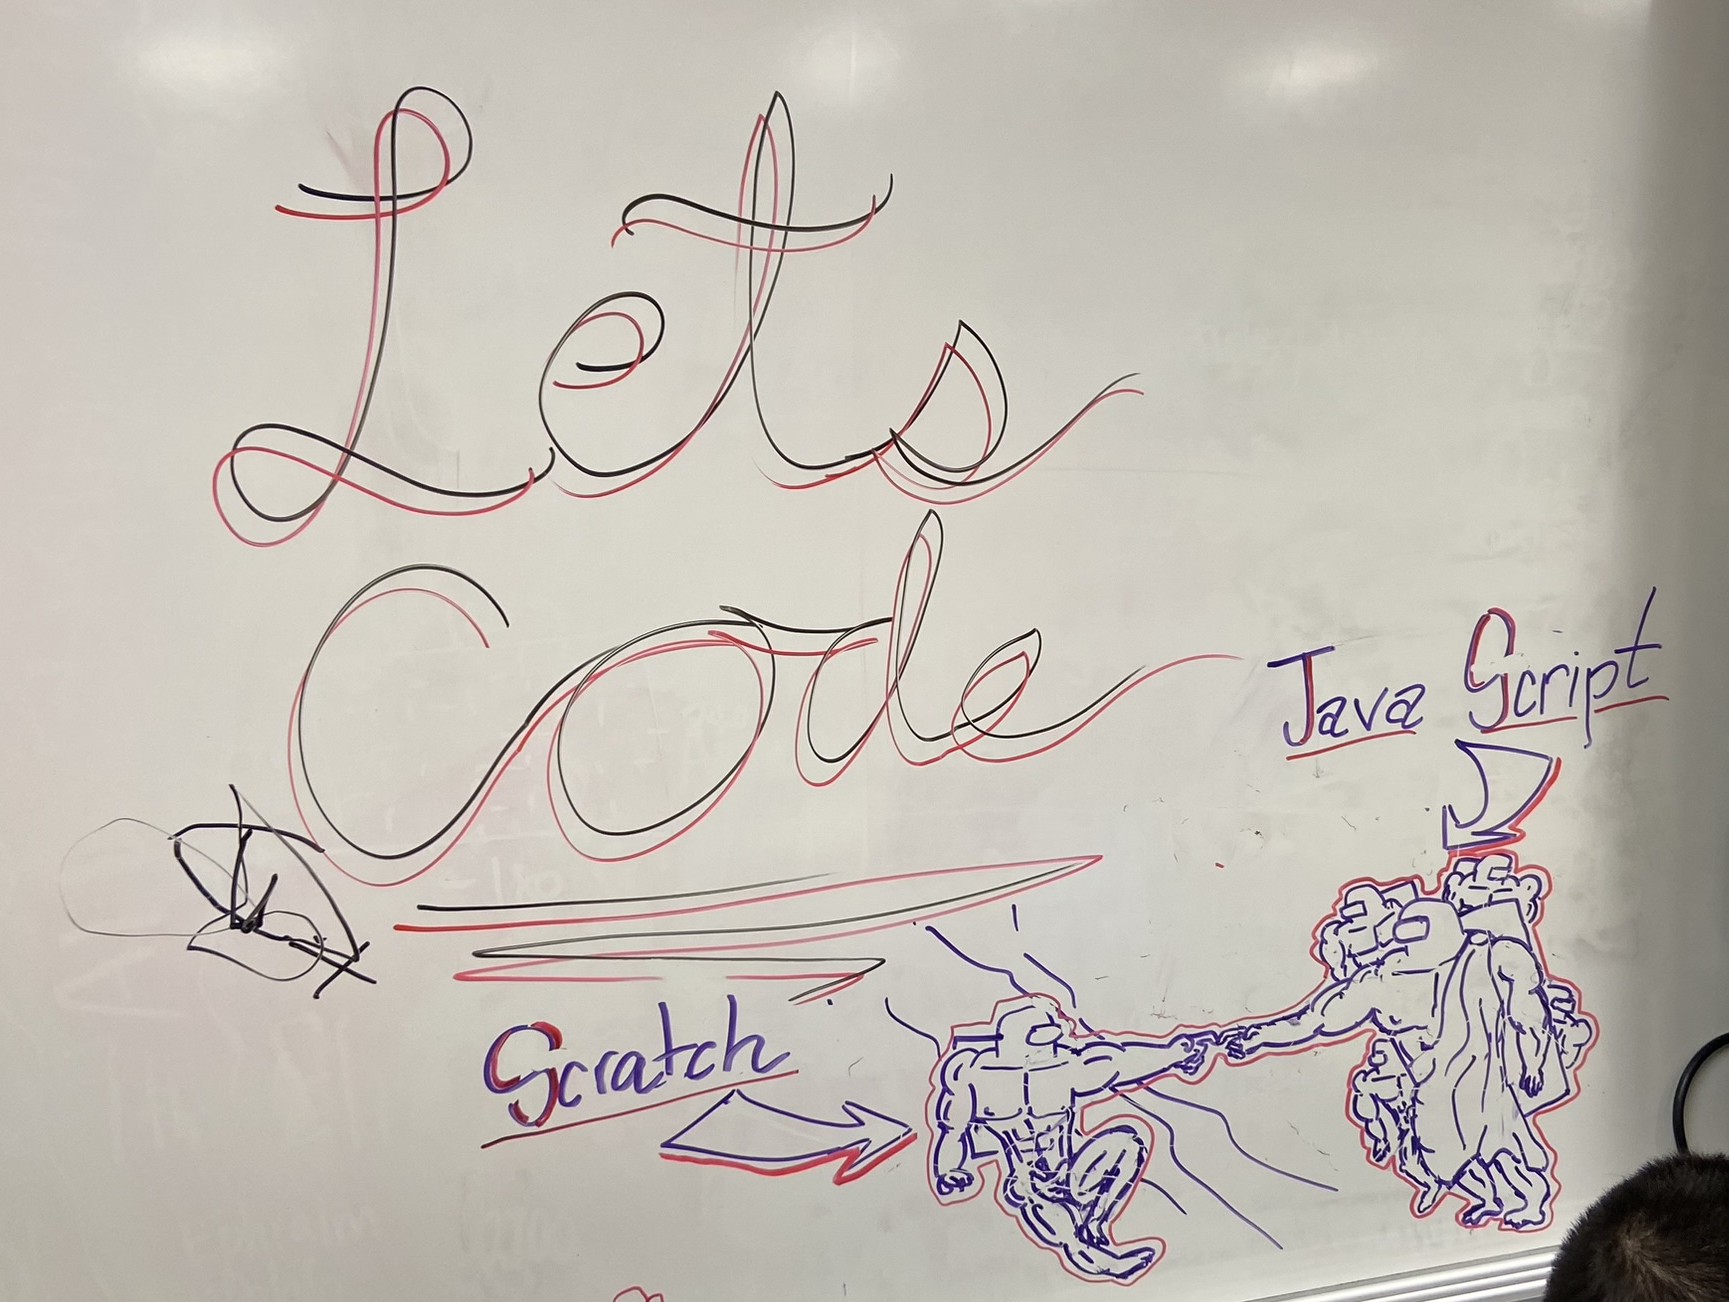 Lets
Code
Java Script
Scratch